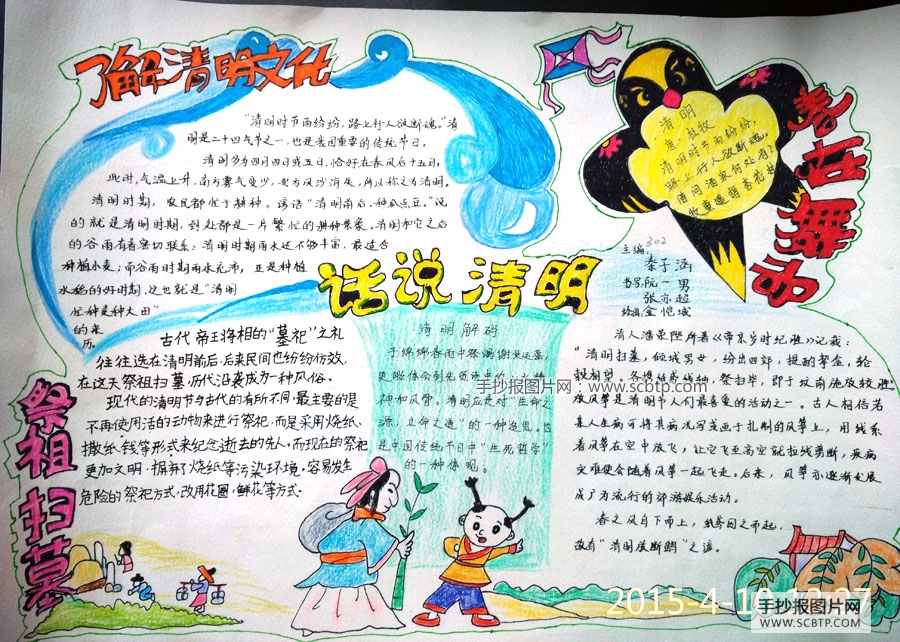 了解清明文化
"清明时节雨纷纷,路上行人欲断魂。"清
明是二十四气节之一,也是我国重要的传统节日,
清明多为四月四日或五日,恰好在春风后十五日,
此时,气温上升,南方雾气变少,北方风沙消失,所以称之为清明。
清明时期,农民都忙于耕种。谚语"清明前后,种瓜点豆。"说
的就是清明时期,到处都是一片繁忙的耕种景象。清明和它之后
的谷雨有着密切联系:清明时期雨水还不够丰富,最适合
种植小麦;而谷雨时期雨水充沛,正是种植
水稻的好时期,这也就是"清明
忙种麦种大田"
的来
历。
话说清明
春在舞动
清明
唐 杜牧
清明时节雨纷纷,
路上行人欲断魂。
借问酒家何处有?
牧童遥指杏花村
主编: 302
秦子涵
书写:阮一男
张亦超
绘画:金恺诚
祭祖扫墓
古代帝王将相的"墓祀"之礼
往往选在清明前后,后来民间也纷纷仿效,
在这天祭祖扫墓,历代沿袭成为一种风俗。
现代的清明节与古代的有所不同,最主要的是
不再使用活的动物来进行祭祀,而是采用烧纸、
撒纸钱等形式来纪念逝去的先人。而现在的祭祀
更加文明,摒弃了烧纸等污染环境,容易发生
危险的祭祀方式,改用花圈,鲜花等方式.
清明解码
于绵绵春雨中祭
更能体会到先贤
神和风骨。清明应是对"生命之
源,立命之道"的一种追思,也
是中国传统节日中"生死哲学"
的一种体现。
清人潘荣陛所著《帝京岁时纪胜》记载:
"清明扫墓,倾城男女,纷出四郊,提酌挈盒,轮
毂相望。各携纸鸢线轴,祭扫毕,即于坟前施放较胜"
放风筝是清明节人们最喜爱的活动之一。古人相信若
某人生病可将其病况写或画于扎制的风筝上,用线系
着风筝在空中放飞,让它飞至高空就拉线剪断,疾病
灾难便会随着风筝一起飞走。后来,风筝亦逐渐发展
成了为流行的郊游娱乐活动。
春之风自下而上,纸鸢因之而起,
故有"清明放断鹞"之谣。
手抄报图片网:www.scbtp.com
2015-4-10 13:27
手抄报图片网
WWW.SCBTP.COM